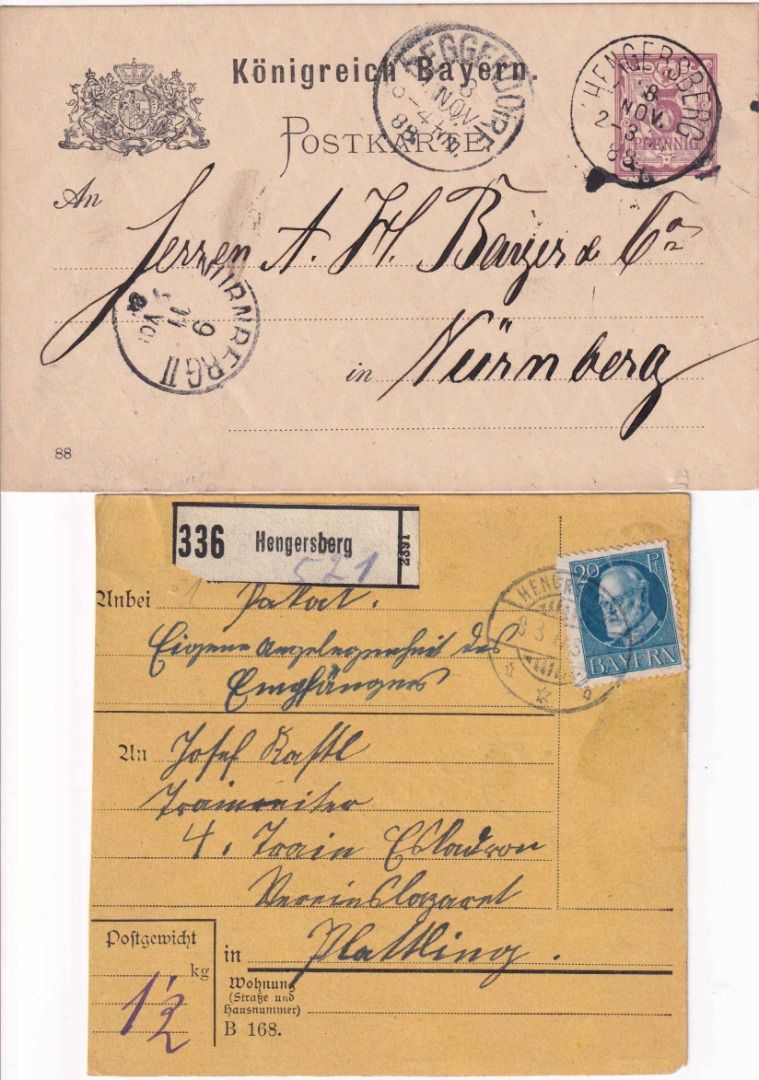 Königreich Bayern.
POSTKARTE
DEGGENDORF
8
NOV.
3-4 NM.
88
HENGERSBERG
8
NOV.
2-3
88
5
PFENNIG
An
Herren A. H. Bayer & Co
NÜRNBERG II
9
11
in Nürnberg
88
336 Hengersberg
2391
571
Anbei 1 Paket.
Eigene Angelegenheit des
Empfängers
20 Pf
BAYERN
An Josef Kastl
Trainreiter
4. Train Eskadron
Vereinslazaret
in Plattling.
Postgewicht
kg
1½
Wohnung
(Straße und
Hausnummer)
B 168.